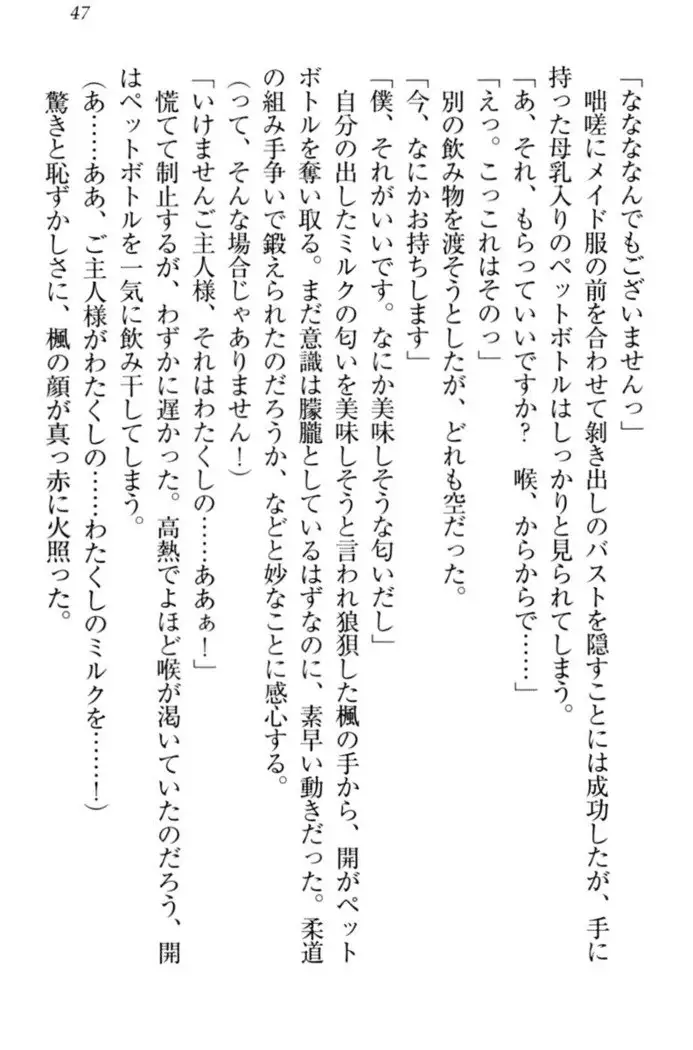 47
「なななななんでもございませんっ」
　咄嗟にメイド服の前を合わせて剝き出しのバストを隠すことには成功したが、手に
持った母乳入りのペットボトルはしっかりと見られてしまう。
「あ、それ、もらっていいですか？　喉、からからで……」
「えっ。こっこれはそのっ」
　別の飲み物を渡そうとしたが、どれも空だった。
「今、なにかお持ちします」
「僕、それがいいです。なにか美味しそうな匂いだし」
　自分の出したミルクの匂いを美味しそうと言われ狼狽した楓の手から、開がペット
ボトルを奪い取る。まだ意識は朦朧としているはずなのに、素早い動きだった。柔道
の組み手争いで鍛えられたのだろうか、などと妙なことに感心する。
（って、そんな場合じゃありません！）
「いけませんご主人様、それはわたくしの……ああぁ！」
　慌てて制止するが、わずかに遅かった。高熱でよほど喉が渇いていたのだろう、開
はペットボトルを一気に飲み干してしまう。
（あ……ああ、ご主人様がわたくしの……わたくしのミルクを……！）
　驚きと恥ずかしさに、楓の顔が真っ赤に火照った。